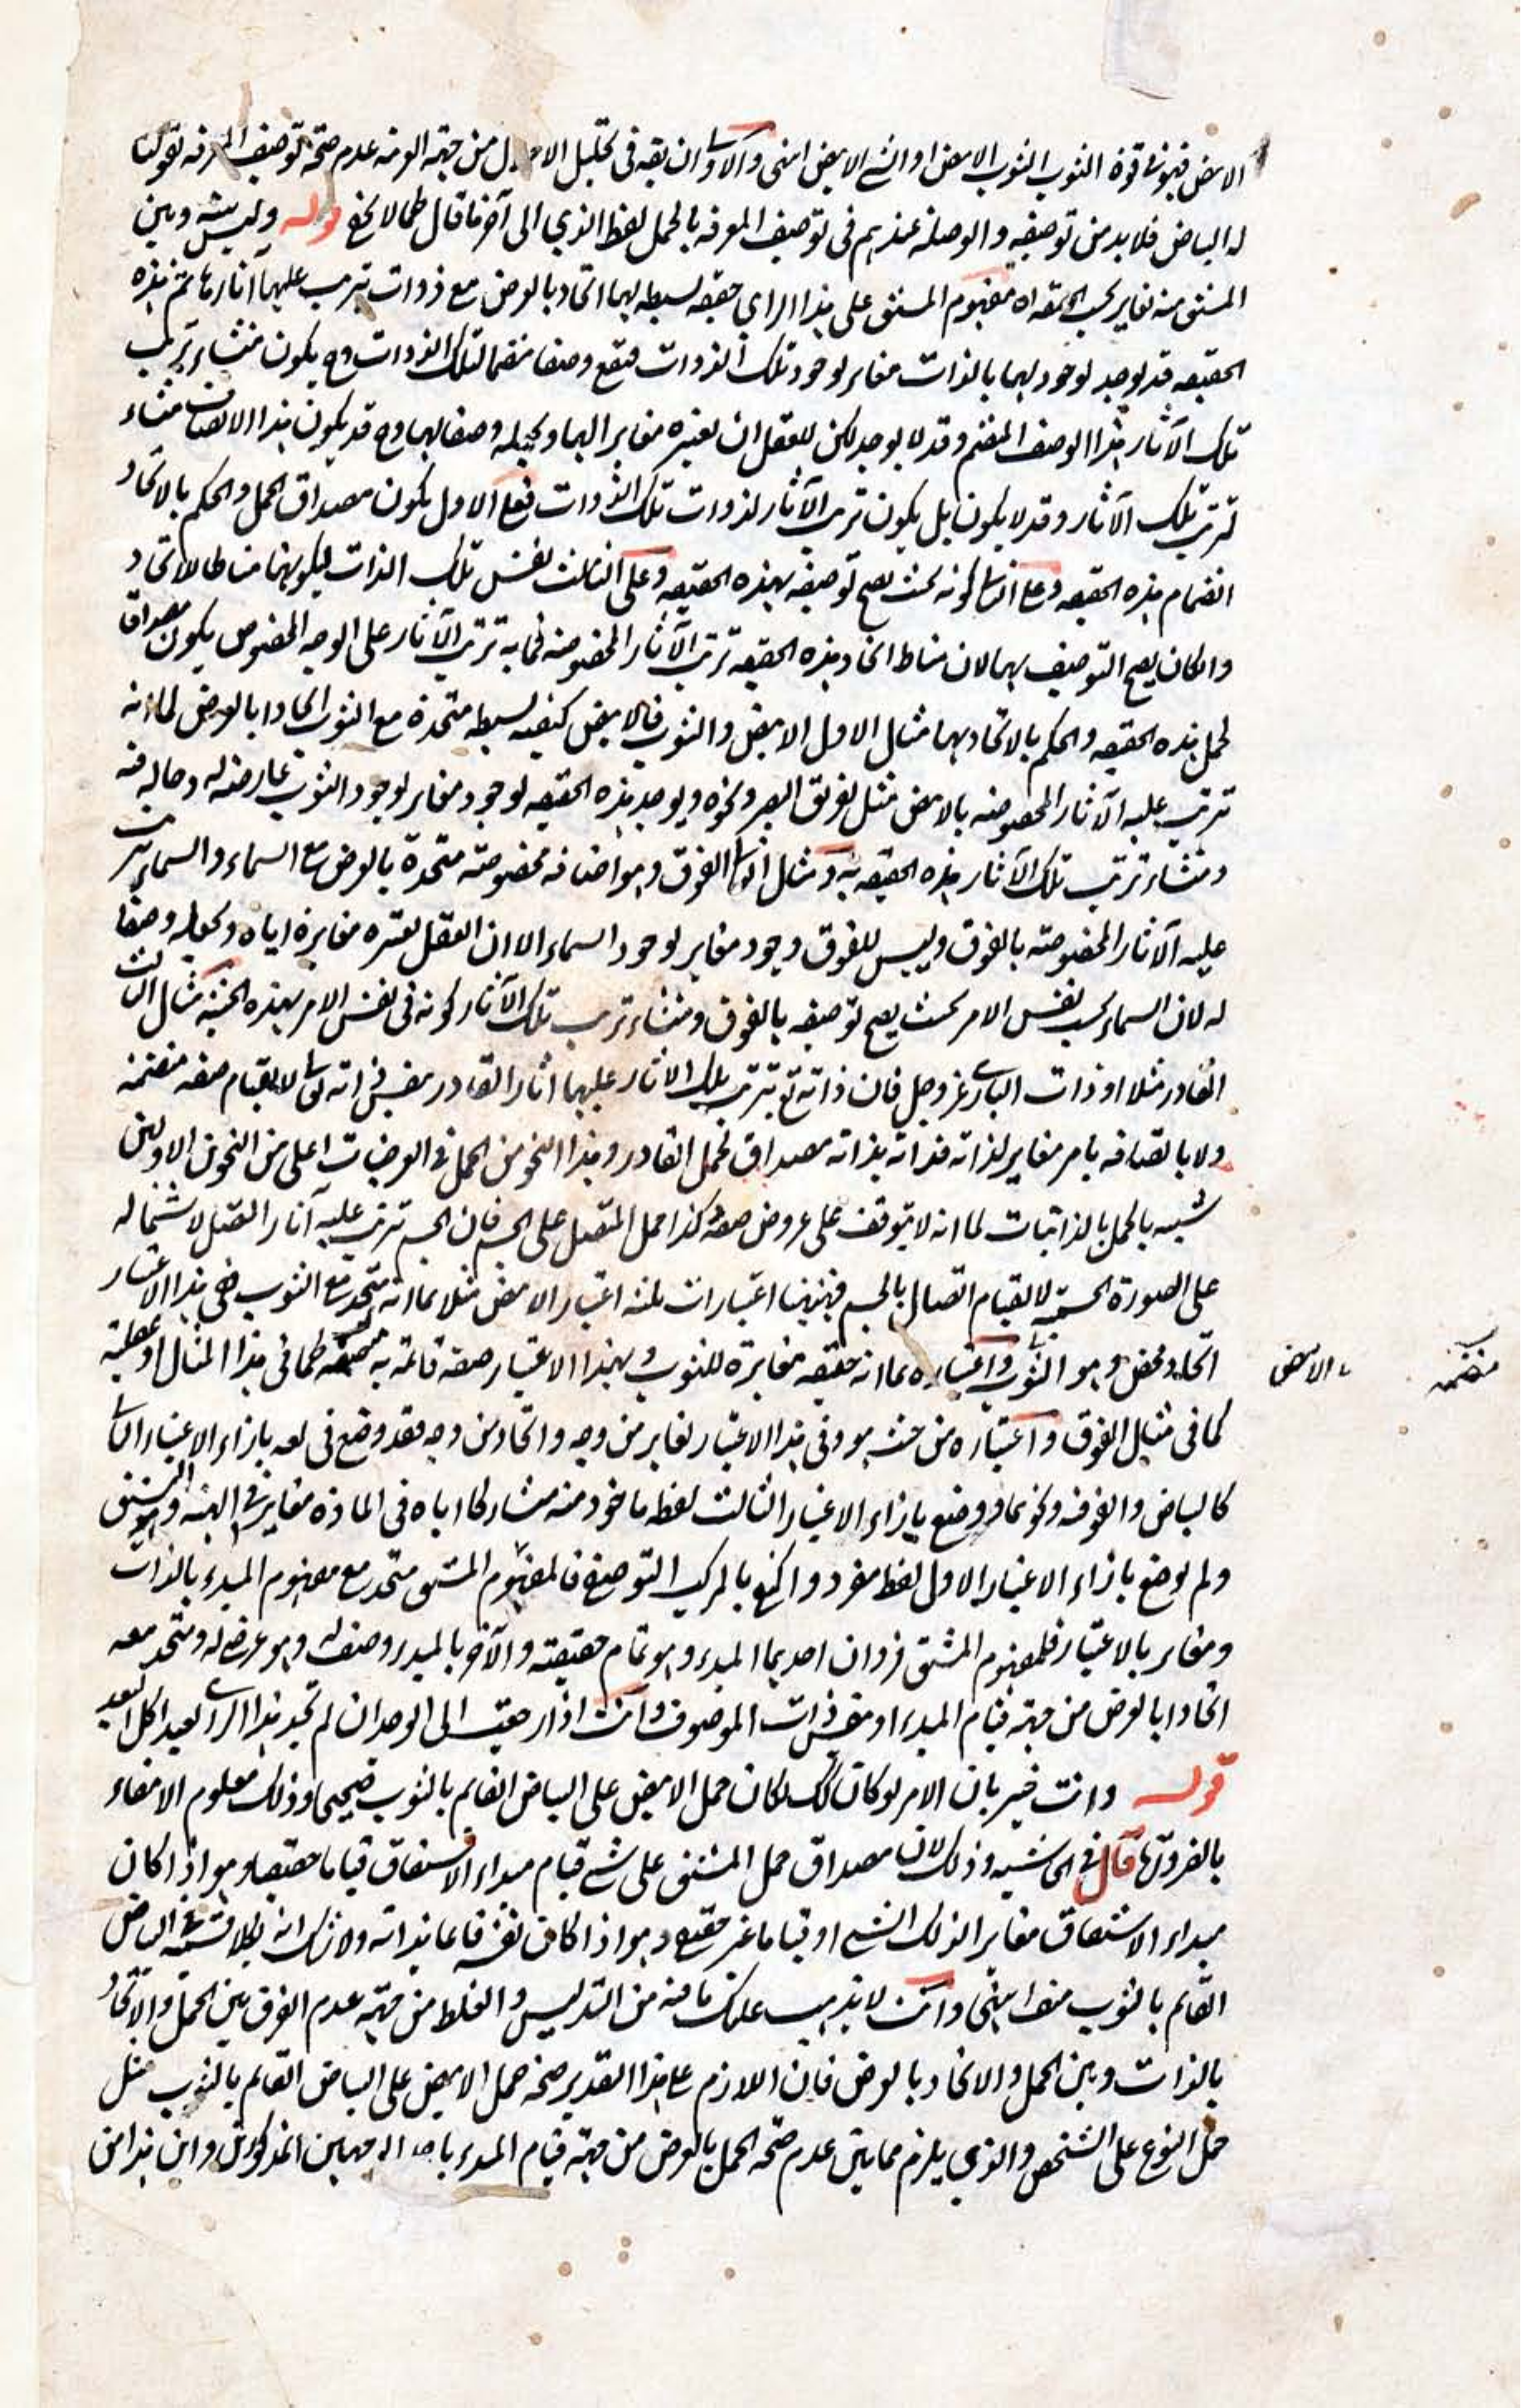 الابيض فهو في قوة الثوب الثوب الابيض او الشيء الابيض انتهى والاولى ان يقه في تحليل الا من جهة العربية عدم صحة توصيف المعرفة بقولنا
له البياض فلا بد من توصيفه والوصلة عندهم في توصيف المعرفة بالجمل لفظ الذي الى آخر ما قال كما لا يخفى قوله وليس بينه وبين
المشتق منه تغاير بحسب الحقيقة اه مفهوم المشتق على هذا الراي حقيقة بسيطة لها اتحاد بالعرض مع ذوات تترتب عليها آثارها ثم هذه
الحقيقة قد يوجد لوجود لها بالذات مغاير لوجود تلك الذوات فتقع وصفا منضما لتلك الذوات وح يكون منشاء ترتب
تلك الآثار هذا الوصف المنضم وقد لا يوجد لكن للعقل ان يعتبره مغايرا لها ويجعله وصفا لها وح قد يكون هذا الاتصاف منشاء
ترتب تلك الآثار وقد لا يكون بل يكون ترتب الآثار لذوات تلك الذوات فعلى الاول يكون مصداق الحمل والحكم بالاتحاد
انضمام هذه الحقيقة وعلى الثاني كونه بحيث يصح توصيفه بهذه الحقيقة وعلى الثالث نفس تلك الذات ليكونها مناطا لاتحاد
وان كان يصح التوصيف بها لان مناط اتحاد هذه الحقيقة ترتب الآثار المخصوصة فما به ترتب الآثار على الوجه المخصوص يكون مصداقا
لحمل هذه الحقيقة والحكم بالاتحاد بها مثال الاول الابيض والثوب فالابيض كيفية بسيطة متحدة مع الثوب اتحادا بالعرض لما انه
ترتب عليه الآثار المخصوصة بالابيض مثل تفريق البصر ونحوه ويوجد هذه الحقيقة لوجود مغاير لوجود الثوب عارضة له وحالة فيه
ومنشاء ترتب تلك الآثار هذه الحقيقة به ومثال الثاني الفوق وهو اضافة مخصوصة متحدة بالعرض مع السماء والسماء يترتب
عليه الآثار المخصوصة بالفوق وليس للفوق وجود مغاير لوجود السماء الا ان العقل يعتبره مغايرة اياه ويجعله وصفا
له لان السماء بحسب نفس الامر بحيث يصح توصيفه بالفوق ومنشاء ترتب تلك الآثار كونه في نفس الامر بهذه الحيثية مثال الثالث
القادر مثلا او ذات الباري عز وجل فان ذاته تع تترتب تلك الآثار عليها آثار القادر بنفس ذاته تعالى لا بقيام صفة منضمة
ولا باتصافه بامر مغاير لذاته فذاته بذاته مصداق لحمل القادر وهذا النحو من الحمل في العرضيات اعلى من النحوين الاولين
شبيه بالحمل بالذاتيات لما انه لا يتوقف على عروض صفة وكذا حمل المتصل على الجسم فان الجسم ترتب عليه آثار المتصل لاشتماله
على الصورة الجسمية لا لقيام اتصال بالجسم فههنا اعتبارات ثلثة اعتبار الابيض مثلا بما انه متحد مع الثوب ففي هذا الاعتبار
اتحاد محض وهو الثوب واعتباره بما انه حقيقة مغايرة للثوب وبهذا الاعتبار صفة قائمة به منضمة كما في هذا المثال او عقلية
كما في مثال الفوق واعتباره من حيث هو وفي هذا الاعتبار تغاير من وجه واتحاد من وجه فقد وضع في لغة بازاء الاعتبار الثاني
كالبياض والفوقية ونحوهما ووضع بازاء الاعتبار الثالث لفظ ماخوذ منه مشاركا اياه في المادة مغاير في الهيئة وهو المشتق
ولم يوضع بازاء الاعتبار الاول لفظ مفرد واكتفي بالمركب التوصيفي فالمفهوم المشتق متحد مع مفهوم المبدء بالذات
ومغاير بالاعتبار فلمفهوم المشتق فردان احديهما المبدء وهو تمام حقيقته والآخر بالمبدء وصف له وهو عرضي له ومتحد معه
اتحادا بالعرض من جهة قيام المبدء او بنفس ذات الموصوف وانت اذا رجعت الى الوجدان لم تجد هذا الراي بعيدا كل البعد
قوله وانت خبير بان الامر لو كان كذلك لكان حمل الابيض على البياض القايم بالثوب صحيحا وذلك معلوم الانتفاء
بالضرورة قال في الحاشية وذلك لان مصداق حمل المشتق على شيء قيام مبداء الاشتقاق قياما حقيقيا وهو اذا كان
مبداء الاشتقاق مغايرا لذلك الشيء او قياما غير حقيقي وهو اذا كان نفسه قائما بذاته ولا شك انه بكلا قسميه في البياض
القايم بالثوب منتف انتهى وانت لا يذهب عليك ما فيه من التدليس والغلط من جهة عدم الفرق بين الحمل والاتحاد
بالذات وبين الحمل والاتحاد بالعرض فان اللازم على هذا التقدير صحة حمل الابيض على البياض القايم بالثوب مثل
حمل النوع على الشخص والذي يلزم مما بين عدم صحة الحمل بالعرض من جهة قيام المبدء باحد الوجهين المذكورين واين هذا من
الابيض
منضمة